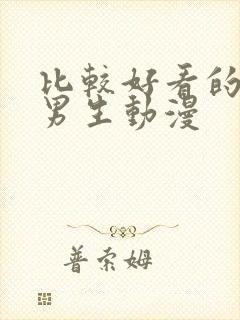 比較好看的
男生動漫
普索姆